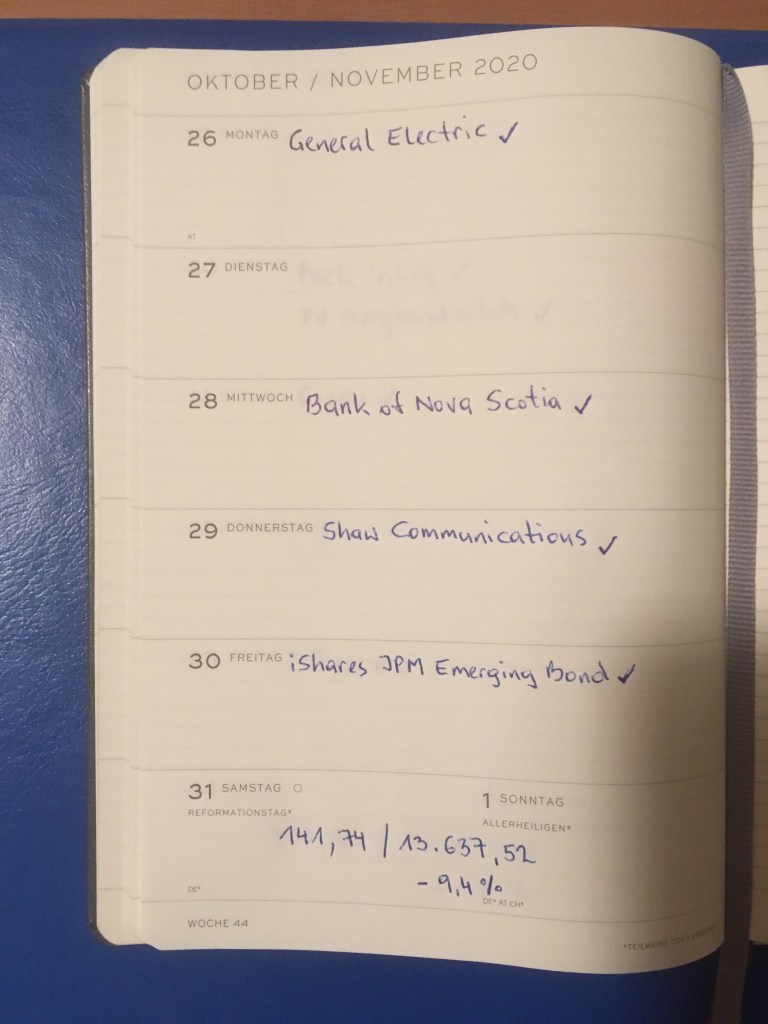 OKTOBER / NOVEMBER 2020
26 MONTAG General Electric ✓
AT
27 DIENSTAG
28 MITTWOCH Bank of Nova Scotia ✓
29 DONNERSTAG Shaw Communications ✓
30 FREITAG iShares JPM Emerging Bond ✓
31 SAMSTAG
REFORMATIONSTAG*
1 SONNTAG
ALLERHEILIGEN*
141,74 / 13.637,52
- 9,4%
DE*
DE* AT CH*
WOCHE 44
*TEILWEISE